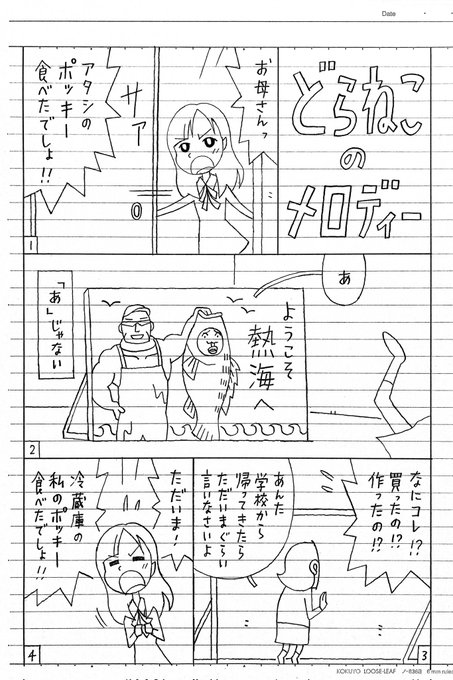 Date
どらねこ
の
メロディー
お母さんっ
サァ
アタシの
ポッキー
食べたでしょ!!
1
あ
ようこそ
熱海へ
「あ」じゃない
2
なにコレ!?
買ったの!?
作ったの!?
あんた
学校から
帰ってきたら
ただいまぐらい
言いなさいよ
3
ただいま!
冷蔵庫の
私のポッキー
食べたでしょ!!
4
KOKUYO LOOSE-LEAF ノ-836B 6 mm ruled